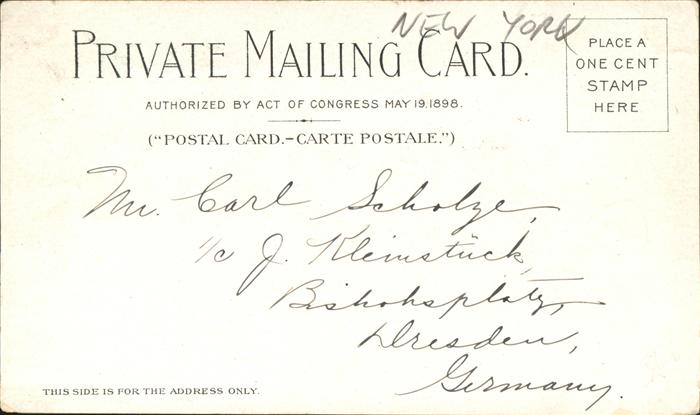 NEW YORK
PRIVATE MAILING CARD.
PLACE A
ONE CENT
STAMP
HERE
AUTHORIZED BY ACT OF CONGRESS MAY 19.1898.
("POSTAL CARD.-CARTE POSTALE.")
Mr. Carl Scholze,
c/o J. Kleinstück,
Bishohsplatz,
Dresden,
Germany.
THIS SIDE IS FOR THE ADDRESS ONLY.